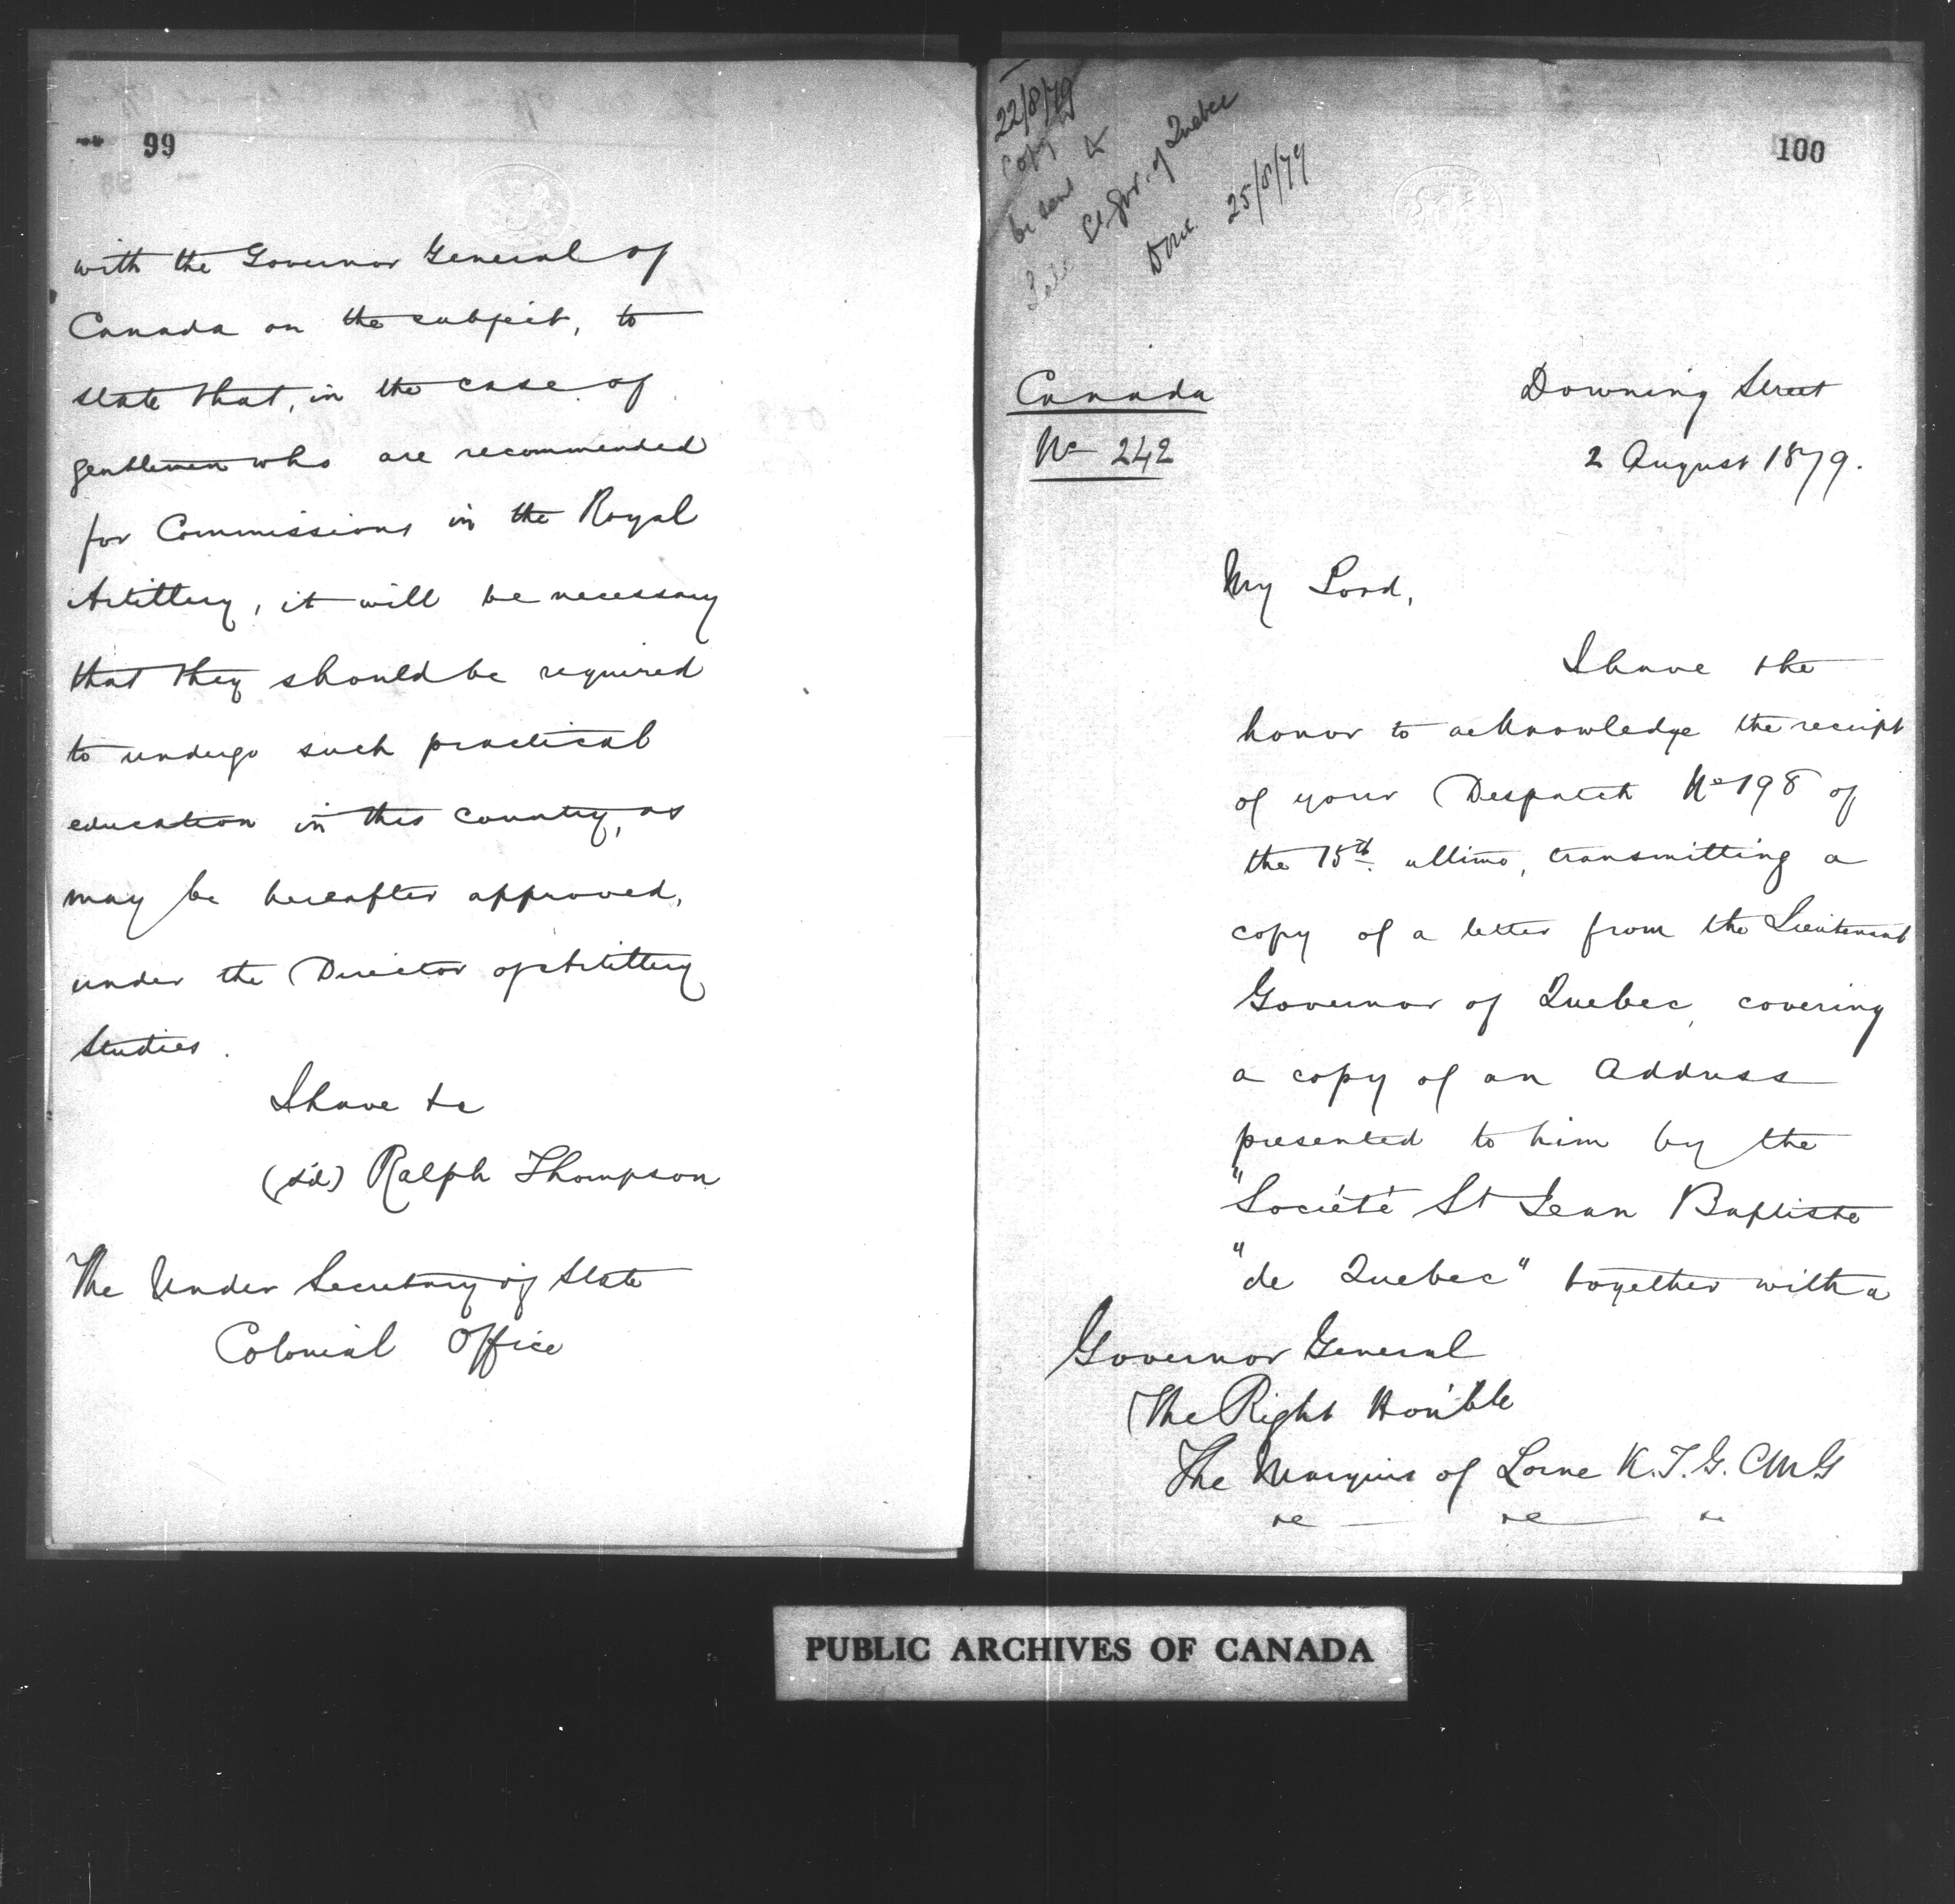 99
with the Governor General of
Canada on the subject, to
state that, in the case of
gentlemen who are recommended
for Commissions in the Royal
Artillery, it will be necessary
that they should be required
to undergo such practical
education in this country, as
may be hereafter approved,
under the Director of Artillery
Studies.
I have &c
(sd) Ralph Thompson
The Under Secretary of State
Colonial Office
100
22/8/79
Copy
be sent to
Lt Gov. of Quebec
Done 25/8/79
Canada
No 242
Downing Street
2 August 1879.
My Lord,
I have the
honor to acknowledge the receipt
of your Despatch No 198 of
the 15th ultimo, transmitting a
copy of a letter from the Lieutenant
Governor of Quebec, covering
a copy of an Address
presented to him by the
"Société St Jean Baptiste
"de Quebec" together with a
Governor General
The Right Hon'ble
The Marquis of Lorne K.T. G.C.M.G
&c &c &c
PUBLIC ARCHIVES OF CANADA